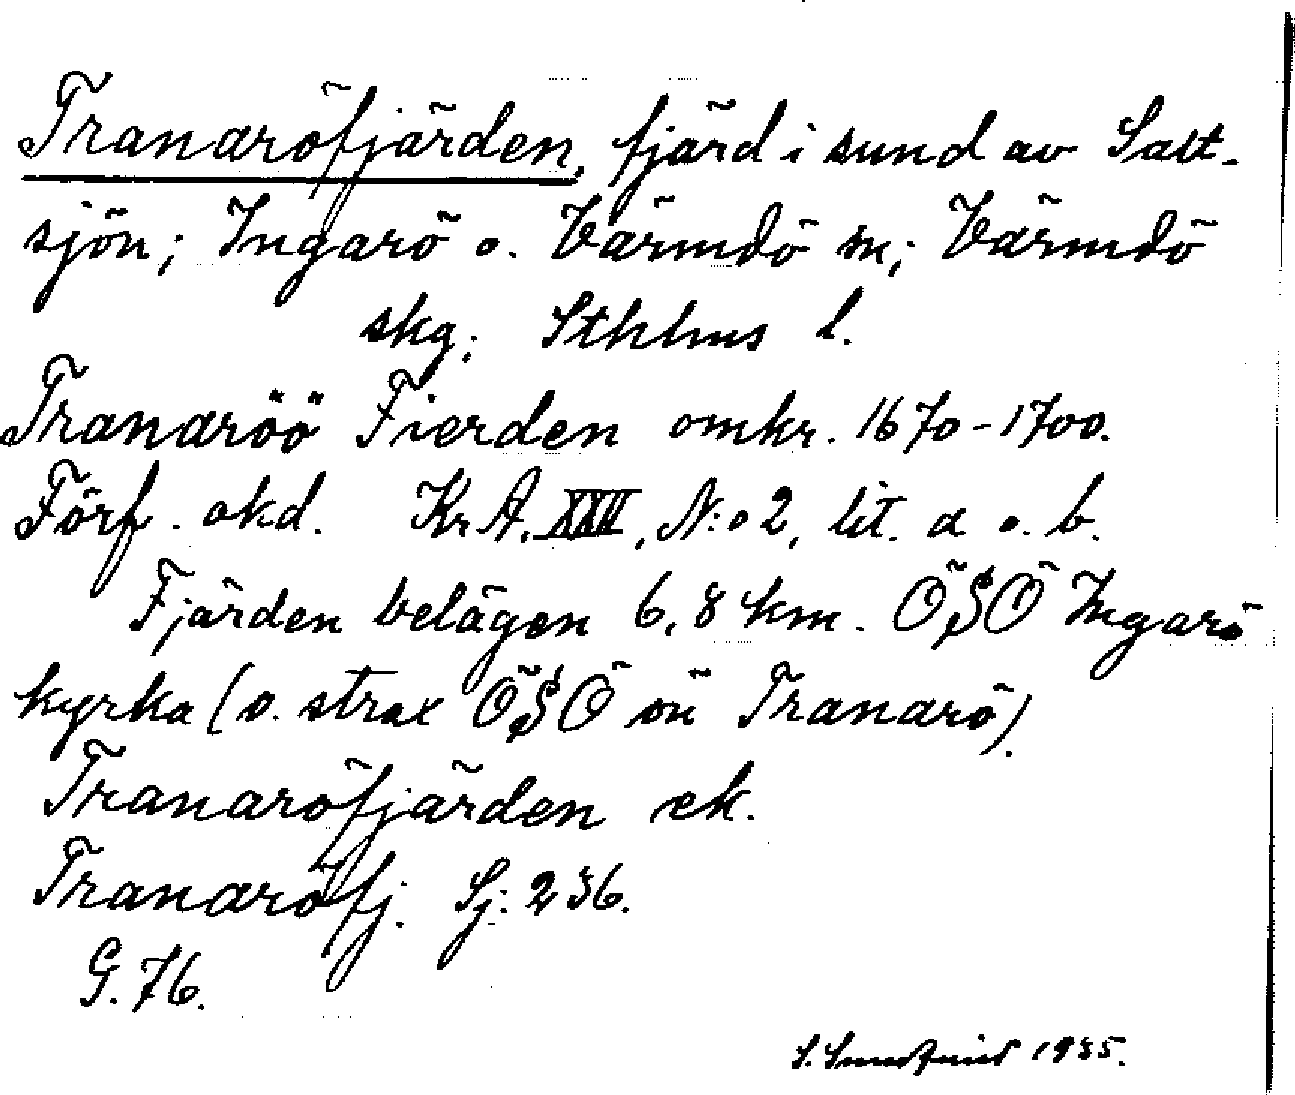 Tranaröfjärden, fjärd i sund av Salt-
sjön; Ingarö o. Värmdö sn; Värmdö
skg; Sthlms l.
Tranaröö Fierden omkr. 1670-1700.
Förf. okd. Kr.A. XXV, N:o 2, lit. a o. b.
Fjärden belägen 6,8 km. ÖSÖ Ingarö
kyrka (o. strax ÖSÖ om Tranarö).
Tranaröfjärden ek.
Tranaröfj. Sj: 236.
G. 76.
S. Sundqvist 1935.